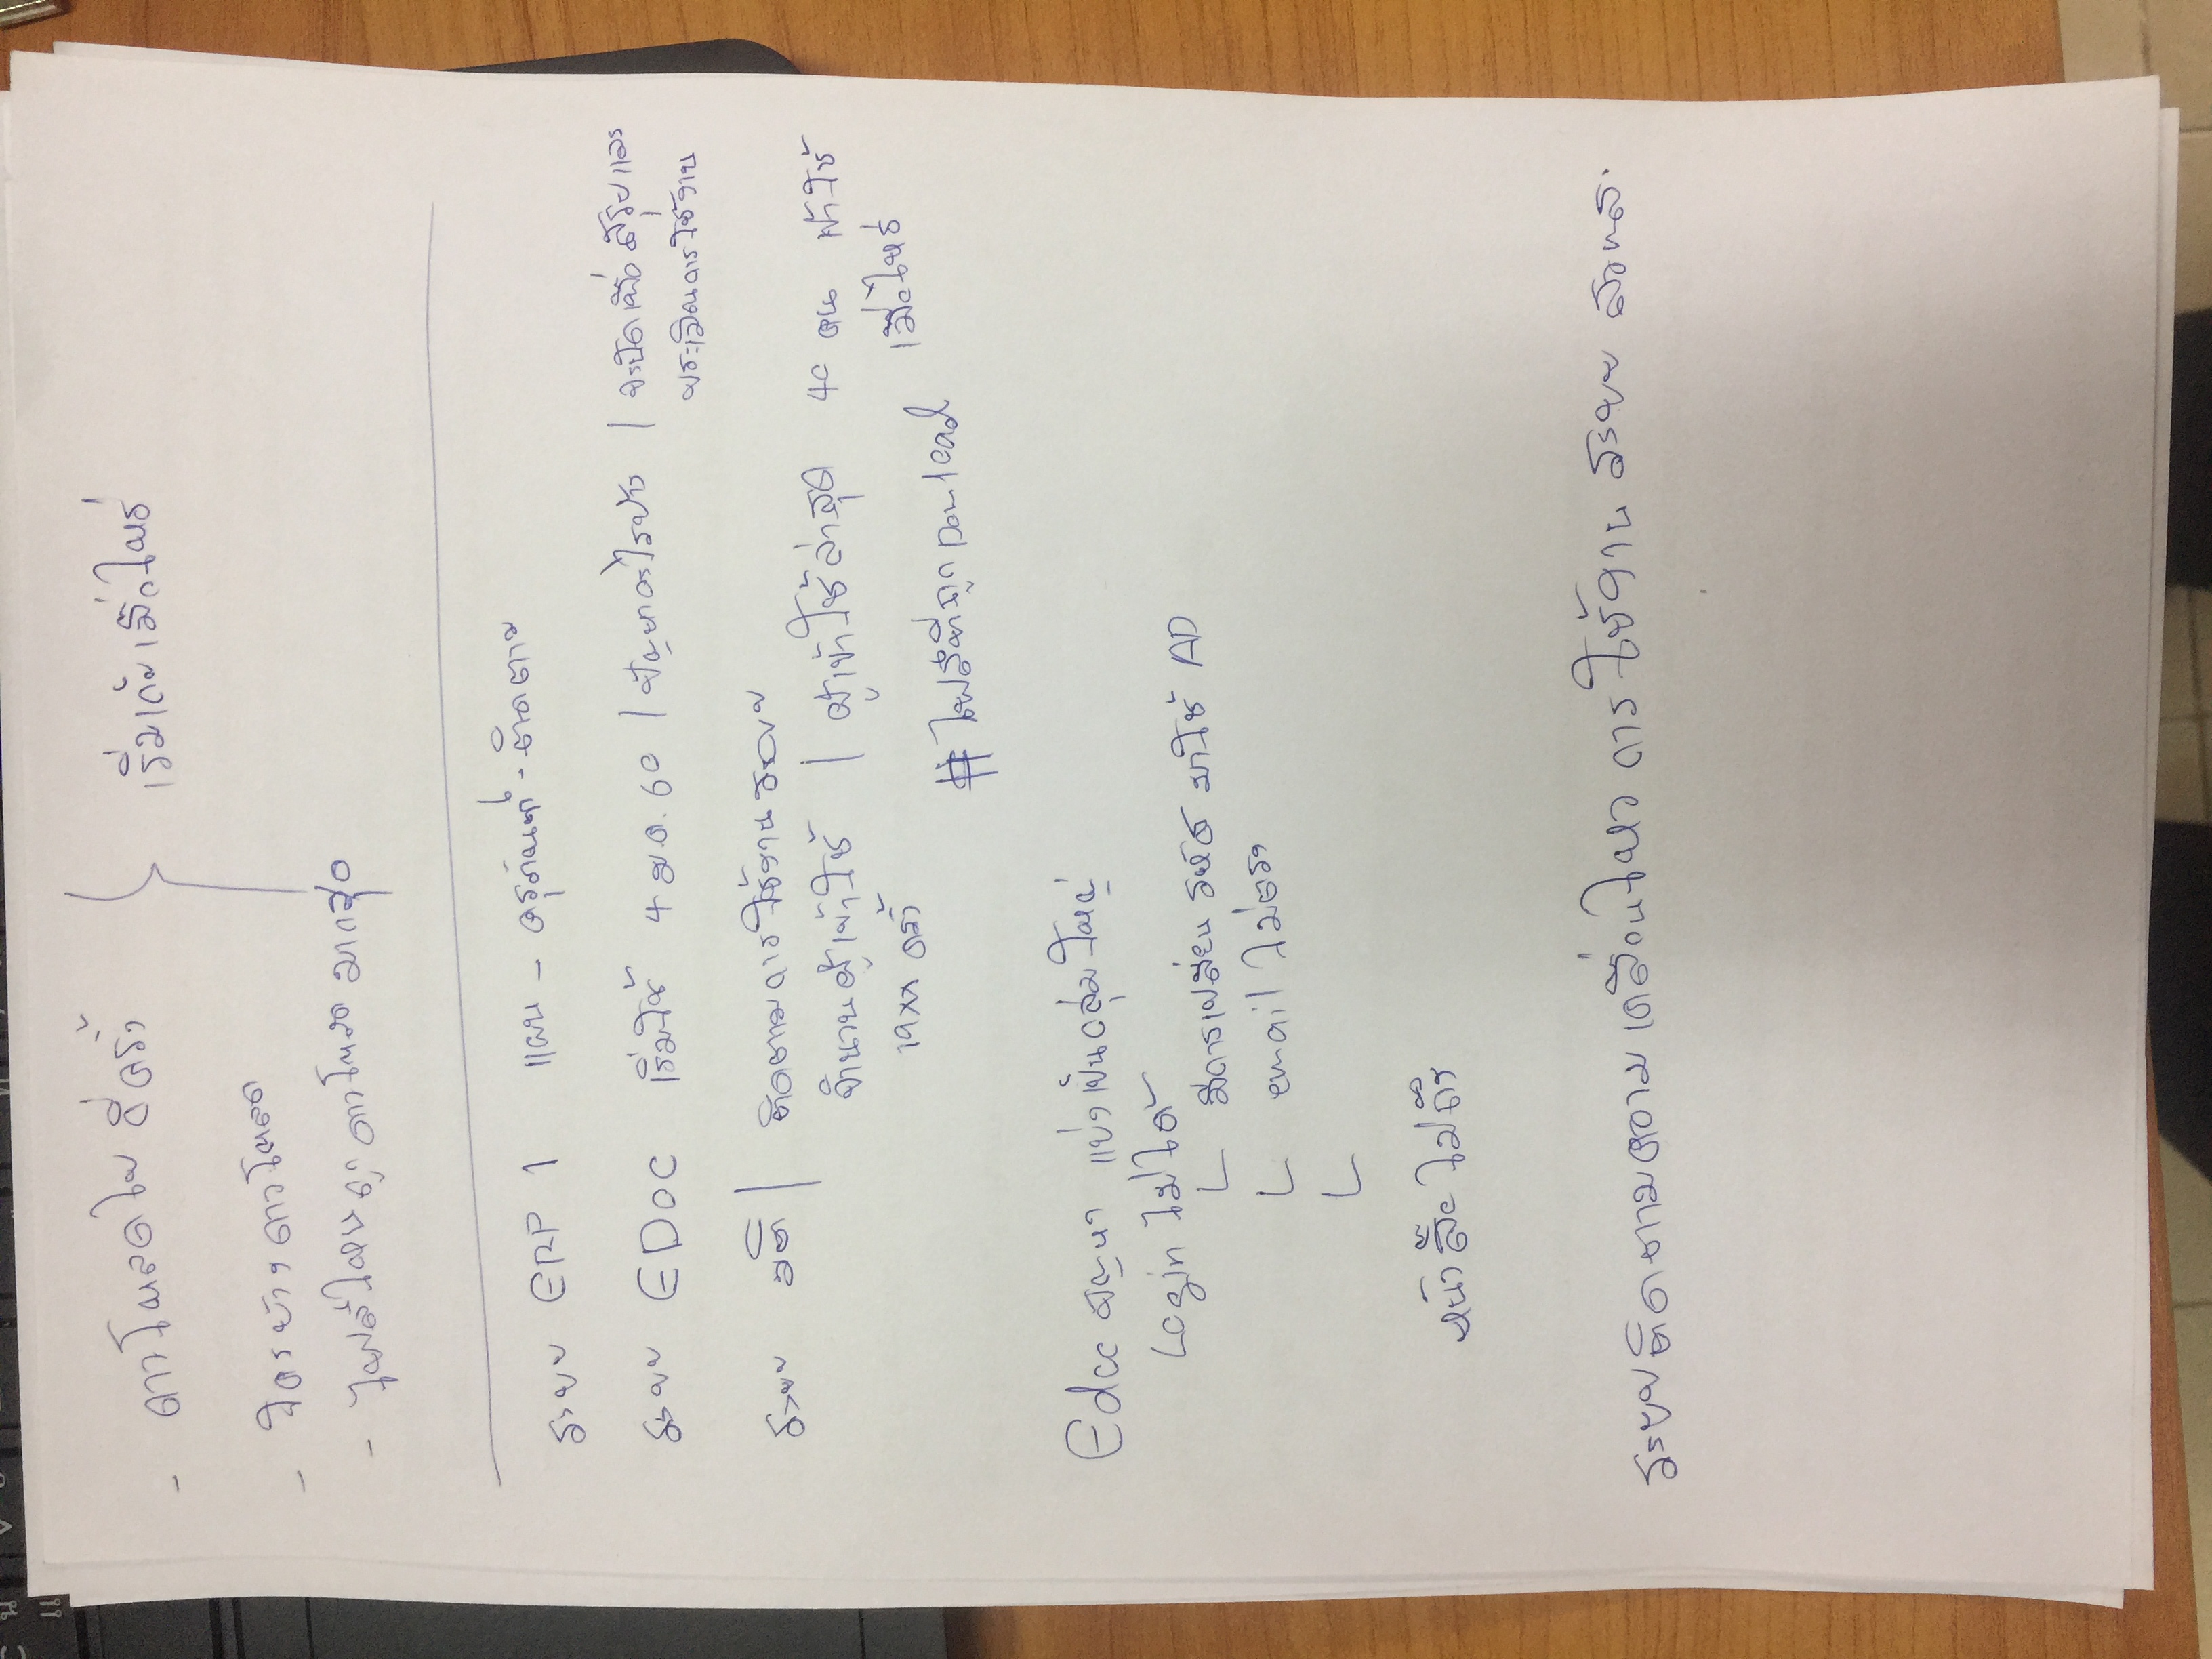 - ดาวโหลดไป กี่ครั้ง } เริ่มเก็บเมื่อไหร่
- ใครบ้าง ดาวโหลด
- ไฟล์ไหน ถูก ดาวโหลด มากสุด
ระบบ ERP 1 แผน - ครุภัณฑ์ - ติดตาม
ระบบ EDOC เริ่มใช้ 4 ม.ค. 60 | ปัญหาอะไรบ้าง | จะปิดเมื่อ สรุปและ
ประเมินการใช้งาน
ระบบ มติ | ติดตามการใช้งานระบบ
จำนวนผู้เข้าใช้ | ผู้เข้าใช้ล่าสุด 40 คน เข้าใช้
ครั้ง เมื่อไหร่
# ไฟล์ที่ถูก Download
Edoc ปัญหา แบ่งเป็นกลุ่มใหญ่
Login ไม่ได้
└ มีการเปลี่ยน รหัส มาใช้ AD
└ email ไม่ตรง
└
หนังสือไม่ถึง
ระบบติดตามความเคลื่อนไหว การใช้งาน ระบบ สวทส.